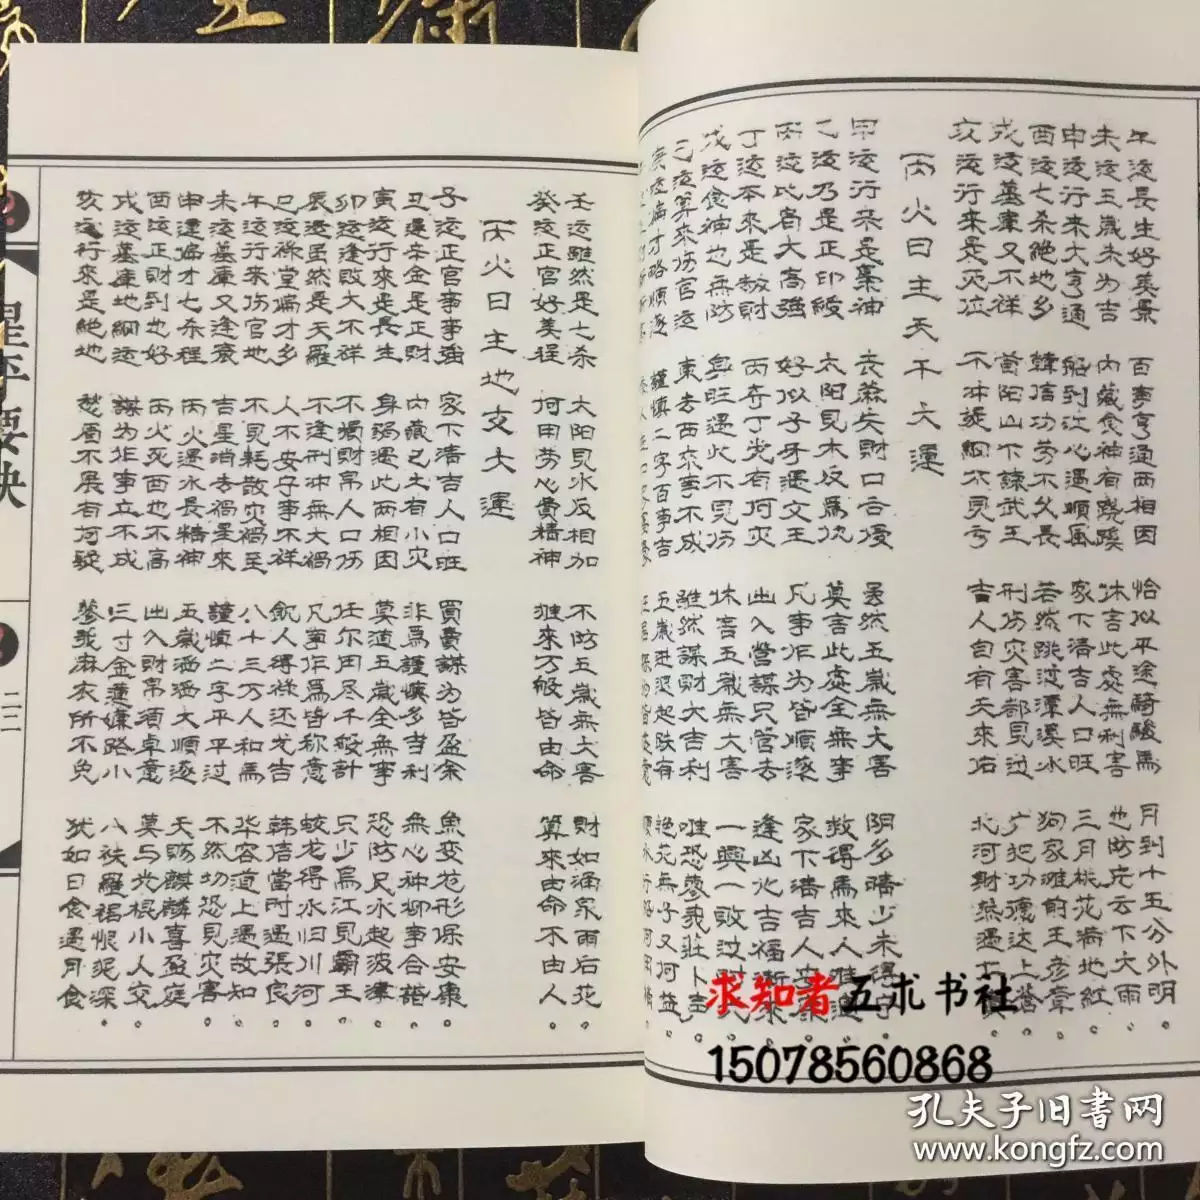 午运長生好英景 百事亨通两相因 恰似平途騎駿馬 月到十五分外明
未运五歲未为吉 内藏食神有蹺蹊 休言此處無利害 也防
申运行來大亨通 船到江心遇順風 家下清吉人口旺 三月桃花满地紅
酉运七杀絶地乡 韓信功劳不久長 若然跳过潭溪水
戌运墓庫又不祥 首阳山下諫武王 刑伤灾害都見过
亥运行來是灾位 吉人自有天來佑
丙火日主天干大運
甲运行來是梟神
乙运乃是正印綬 太阳見木反爲仇 莫言此處全無事
丙运比肩大高強 好似子牙遇文王 凡事作为皆順遂 家下清吉人
丁运本來是劫財 丙夺丁光有何灾 出入營謀只管去 逢凶化吉福漸來
戊运食神也無防 身旺遇火不見伤 休言五歲無大害 一興一败过
己运算來伤官运 東去西來事不成 雖然謀財大吉利 唯恐
庚运偏才略順遂 謹慎二字百事吉 五歲進退起跌有 絶花無子又何益
壬运雖然是七杀 太阳見水反相加 不防五歲無大害 財如涌泉雨后花
癸运正官好美程 何用劳心費精神 雖來万般皆由命 算來由命不由人
丙火日主地支大運
子运正官事事強 家下清吉人口旺 買賣謀为皆盈余 魚变龙形保安康
丑運辛金是正財 内藏己土有小灾 非爲謹慎多与利 無心种柳事合諧
寅运行來是長生 身弱遇此两相因 莫道五歲全無事 恐防凡水起波濤
卯运逢败大不祥 不損財帛人口伤 任尔用尽千般計 只少烏江見霸王
辰運虽然是天羅 不逢刑冲無大禍 凡事作爲皆称意 蛟龙得水归川河
巳运禄堂偏才乡 人不安宁事不祥 飢人得禄还尤吉 韩信當时遇張良
午运行來伤官地 不見耗散灾禍至 八十三万人和馬 华容道上遇故知
未运墓庫又逢衰 吉星消去禍星來 謹慎二字平平过 不然切恐見灾害
申運偏才七杀程 丙火遇水長精神 五歲涵涵大順遂 天賜麒麟喜盈庭
酉运正財到也好 丙火死酉也不高 出入財帛須卓意 莫与光棍小人交
戌运墓庫地網运 謀为作事立不成 三寸金蓮嫌路小 八袂羅裙恨泥深
亥运行來是絶地 愁眉不展有何疑 蓼莪麻衣所不免 犹如日食遇月食
星平要訣
二二
求知者五术书社
15078560868
孔夫子旧书网
www.kongfz.com